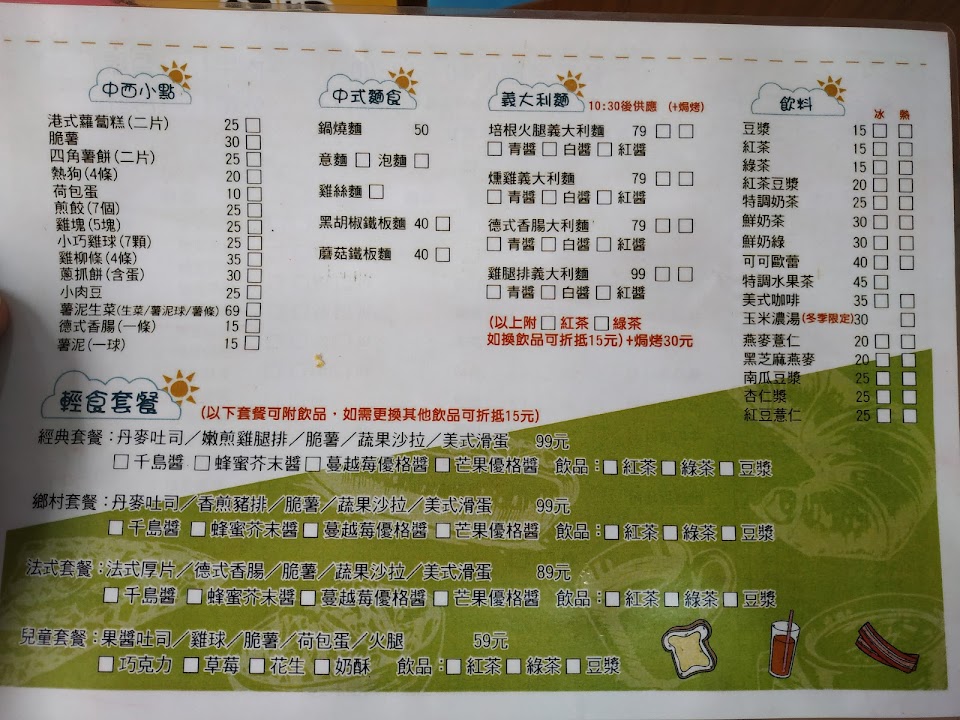 中西小點
港式蘿蔔糕(二片) 25 □
脆薯 30 □
四角薯餅(二片) 25 □
熱狗(4條) 20 □
荷包蛋 10 □
煎餃(7個) 25 □
雞塊(5塊) 25 □
小巧雞球(7顆) 25 □
雞柳條(4條) 35 □
蔥抓餅(含蛋) 30 □
小肉豆 25 □
薯泥生菜(生菜/薯泥球/薯條) 69 □
德式香腸(一條) 15 □
薯泥(一球) 15 □
中式麵食
鍋燒麵 50
意麵 □ 泡麵 □
雞絲麵 □
黑胡椒鐵板麵 40 □
蘑菇鐵板麵 40 □
義大利麵 10:30後供應 (+焗烤)
培根火腿義大利麵 79 □ □
□ 青醬 □ 白醬 □ 紅醬
燻雞義大利麵 79 □ □
□ 青醬 □ 白醬 □ 紅醬
德式香腸大利麵 79 □ □
□ 青醬 □ 白醬 □ 紅醬
雞腿排義大利麵 99 □ □
□ 青醬 □ 白醬 □ 紅醬
(以上附 □ 紅茶 □ 綠茶
如換飲品可折抵15元)+焗烤30元
飲料 冰 熱
豆漿 15 □ □
紅茶 15 □ □
綠茶 15 □ □
紅茶豆漿 20 □ □
特調奶茶 25 □ □
鮮奶茶 30 □ □
鮮奶綠 30 □ □
可可歐蕾 40 □ □
特調水果茶 45 □
美式咖啡 35 □ □
玉米濃湯(冬季限定)30 □
燕麥薏仁 20 □ □
黑芝麻燕麥 20 □ □
南瓜豆漿 25 □ □
杏仁漿 25 □ □
紅豆薏仁 25 □ □
輕食套餐 (以下套餐可附飲品，如需更換其他飲品可折抵15元)
經典套餐：丹麥吐司／嫩煎雞腿排／脆薯／蔬果沙拉／美式滑蛋 99元
□ 千島醬 □ 蜂蜜芥末醬 □ 蔓越莓優格醬 □ 芒果優格醬 飲品：□ 紅茶 □ 綠茶 □ 豆漿
鄉村套餐：丹麥吐司／香煎豬排／脆薯／蔬果沙拉／美式滑蛋 99元
□ 千島醬 □ 蜂蜜芥末醬 □ 蔓越莓優格醬 □ 芒果優格醬 飲品：□ 紅茶 □ 綠茶 □ 豆漿
法式套餐：法式厚片／德式香腸／脆薯／蔬果沙拉／美式滑蛋 89元
□ 千島醬 □ 蜂蜜芥末醬 □ 蔓越莓優格醬 □ 芒果優格醬 飲品：□ 紅茶 □ 綠茶 □ 豆漿
兒童套餐：果醬吐司／雞球／脆薯／荷包蛋／火腿 59元
□ 巧克力 □ 草莓 □ 花生 □ 奶酥 飲品：□ 紅茶 □ 綠茶 □ 豆漿